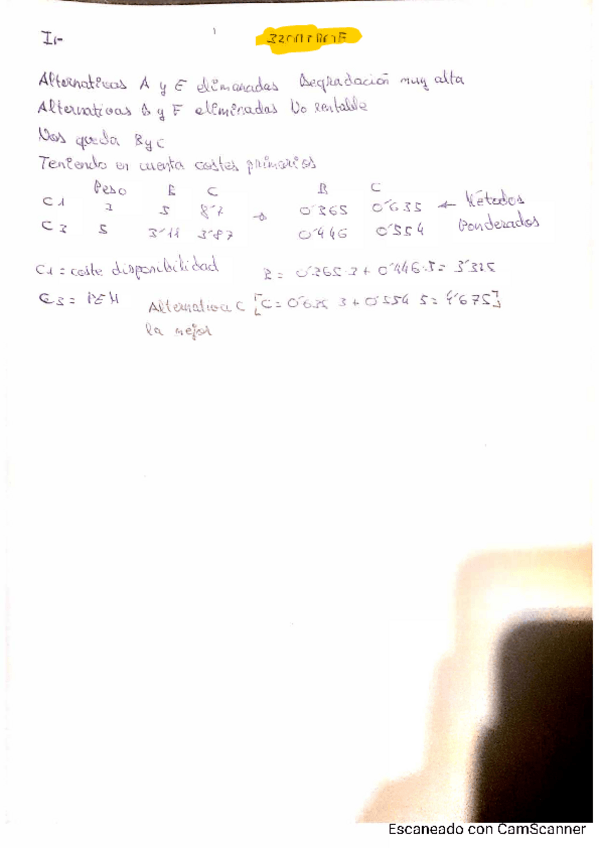 I.-
Alternativas A y E eliminadas Degradación muy alta
Alternativas D y F eliminadas No rentable
Nos queda B y C
Teniendo en cuenta costes primarios
Peso B C B C
C1 3 5 8'7 → 0'365 0'635 ← Métodos
C3 5 3'11 3'87 0'446 0'554 Ponderados
C1 = coste disponibilidad B = 0'365·3 + 0'446·5 = 3'325
C3 = Alternativa C [C = 0'635 3 + 0'554 5 = 4'675]
la mejor
Escaneado con CamScanner